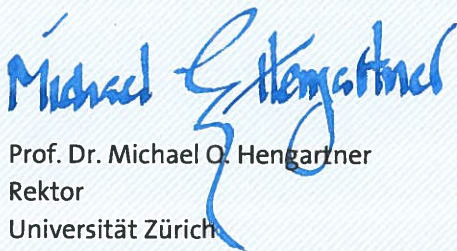 Michael O. Hengartner
Prof. Dr. Michael O. Hengartner
Rektor
Universität Zürich